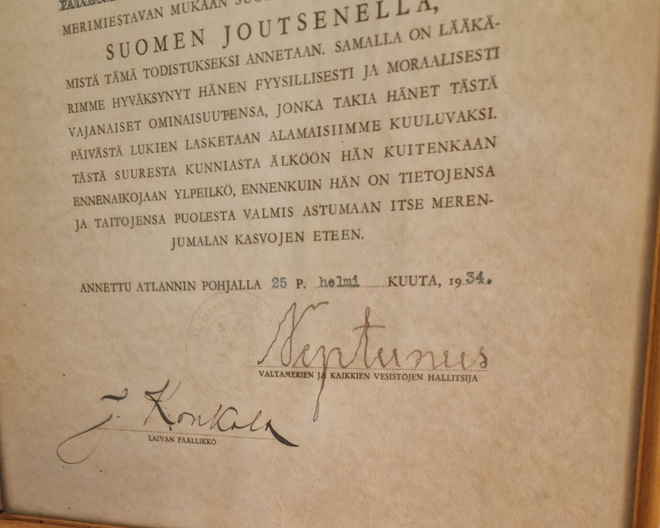 MERIMIESTAVAN MUKAAN
SUOMEN JOUTSENELLA,
MISTÄ TÄMÄ TODISTUKSEKSI ANNETAAN. SAMALLA ON LÄÄKÄ-
RIMME HYVÄKSYNYT HÄNEN FYYSILLISESTI JA MORAALISESTI
VAJANAISET OMINAISUUTENSA, JONKA TAKIA HÄNET TÄSTÄ
PÄIVÄSTÄ LUKIEN LASKETAAN ALAMAISIIMME KUULUVAKSI.
TÄSTÄ SUURESTA KUNNIASTA ÄLKÖÖN HÄN KUITENKAAN
ENNENAIKOJAAN YLPEILKÖ, ENNENKUIN HÄN ON TIETOJENSA
JA TAITOJENSA PUOLESTA VALMIS ASTUMAAN ITSE MEREN-
JUMALAN KASVOJEN ETEEN.
ANNETTU ATLANNIN POHJALLA 25 P. helmi KUUTA, 1934.
Neptunus
VALTAMERIEN JA KAIKKIEN VESISTÖJEN HALLITSIJA
J. Konkola
LAIVAN PÄÄLLIKKÖ